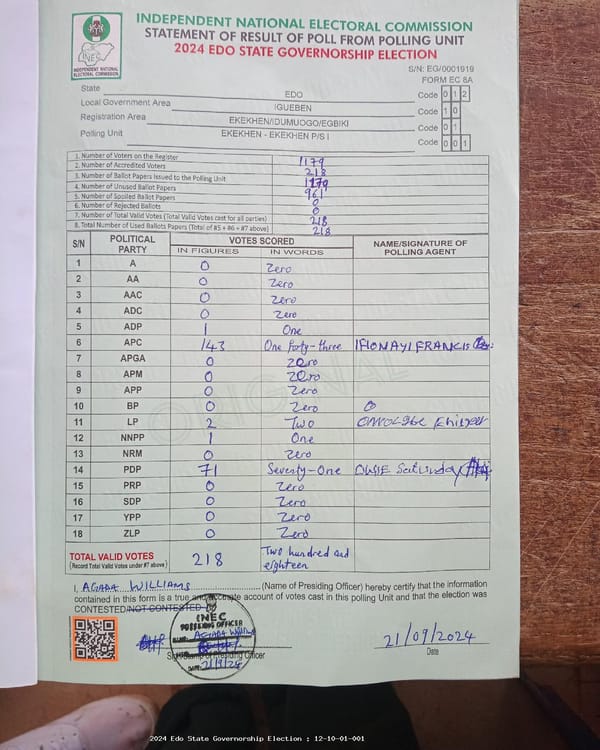 INDEPENDENT NATIONAL ELECTORAL COMMISSION
STATEMENT OF RESULT OF POLL FROM POLLING UNIT
2024 EDO STATE GOVERNORSHIP ELECTION
INEC
INDEPENDENT NATIONAL
ELECTORAL COMMISSION
S/N: EG/0001919
FORM EC 8A
State EDO Code 0 1 2
Local Government Area IGUEBEN Code 1 0
Registration Area EKEKHEN/IDUMUOGO/EGBIKI Code 0 1
Polling Unit EKEKHEN - EKEKHEN P/S I Code 0 0 1
1. Number of Voters on the Register 1179
2. Number of Accredited Voters 218
3. Number of Ballot Papers Issued to the Polling Unit 1179
4. Number of Unused Ballot Papers 961
5. Number of Spoiled Ballot Papers 0
6. Number of Rejected Ballots 0
7. Number of Total Valid Votes (Total Valid Votes cast for all parties) 218
8. Total Number of Used Ballots Papers (Total of #5 + #6 + #7 above) 218
S/N POLITICAL PARTY VOTES SCORED NAME/SIGNATURE OF POLLING AGENT
IN FIGURES IN WORDS
1 A 0 Zero
2 AA 0 Zero
3 AAC 0 Zero
4 ADC 0 Zero
5 ADP 1 One
6 APC 143 One forty-three FRANCIS
7 APGA 0 Zero
8 APM 0 Zero
9 APP 0 Zero
10 BP 0 Zero
11 LP 2 Two
12 NNPP 1 One
13 NRM 0 Zero
14 PDP 71 Seventy-One Saturday
15 PRP 0 Zero
16 SDP 0 Zero
17 YPP 0 Zero
18 ZLP 0 Zero
ORIGINAL
TOTAL VALID VOTES 218 Two hundred and eighteen
(Record Total Valid Votes under #7 above)
I, AGABA WILLIAMS (Name of Presiding Officer) hereby certify that the information
contained in this form is a true and accurate account of votes cast in this polling Unit and that the election was
CONTESTED/NOT CONTESTED
INEC
PRESIDING OFFICER
21/9/24
Sign/Stamp of Presiding Officer
21/09/2024
Date
2024 Edo State Governorship Election : 12-10-01-001